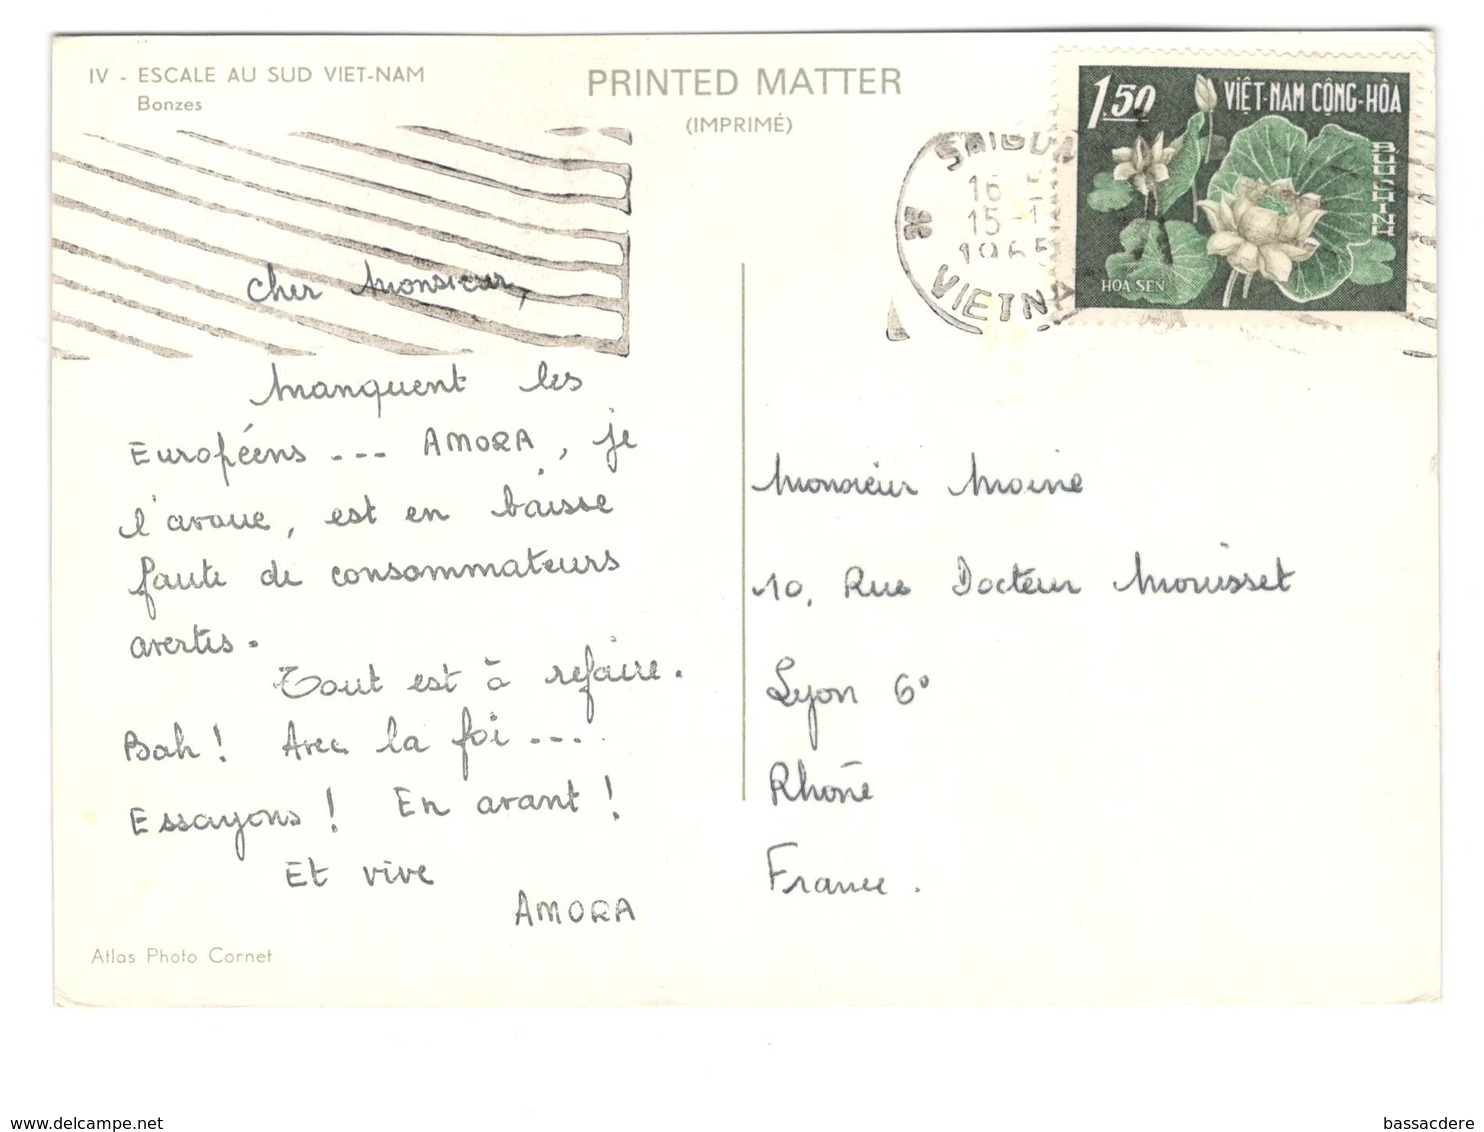 IV - ESCALE AU SUD VIET-NAM
Bonzes
PRINTED MATTER
(IMPRIMÉ)
1.50
VIỆT-NAM CỘNG-HÒA
BƯU CHÍNH
HOA SEN
SAIGON
16
15-1
1965
VIETNA
Cher Monsieur,
Manquent les
Européens --- AMORA, je
l'avoue, est en baisse
faute de consommateurs
avertis.
Tout est à refaire.
Bah! Avec la foi ---
Essayons! En avant!
Et vive
AMORA
Monsieur Moine
10, Rue Docteur Mouisset
Lyon 6°
Rhône
France.
Atlas Photo Cornet
www.delcampe.net
bassacdere